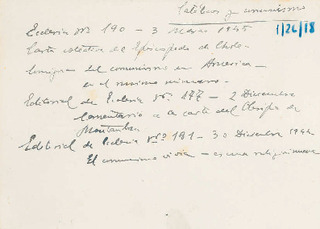 Católicos y comunismo
1/26/18
Ecclesia nº 190 - 3 Marzo 1945
Carta colectiva del Episcopado de Chile -
del comunismo en America -
en el mismo número -
Editorial de Ecclesia nº 177 - 2 Diciembre
Comentario a la carta del Obispo de
Montauban
Editorial de Ecclesia nº 181 - 30 Diciembre 1944
El comunismo